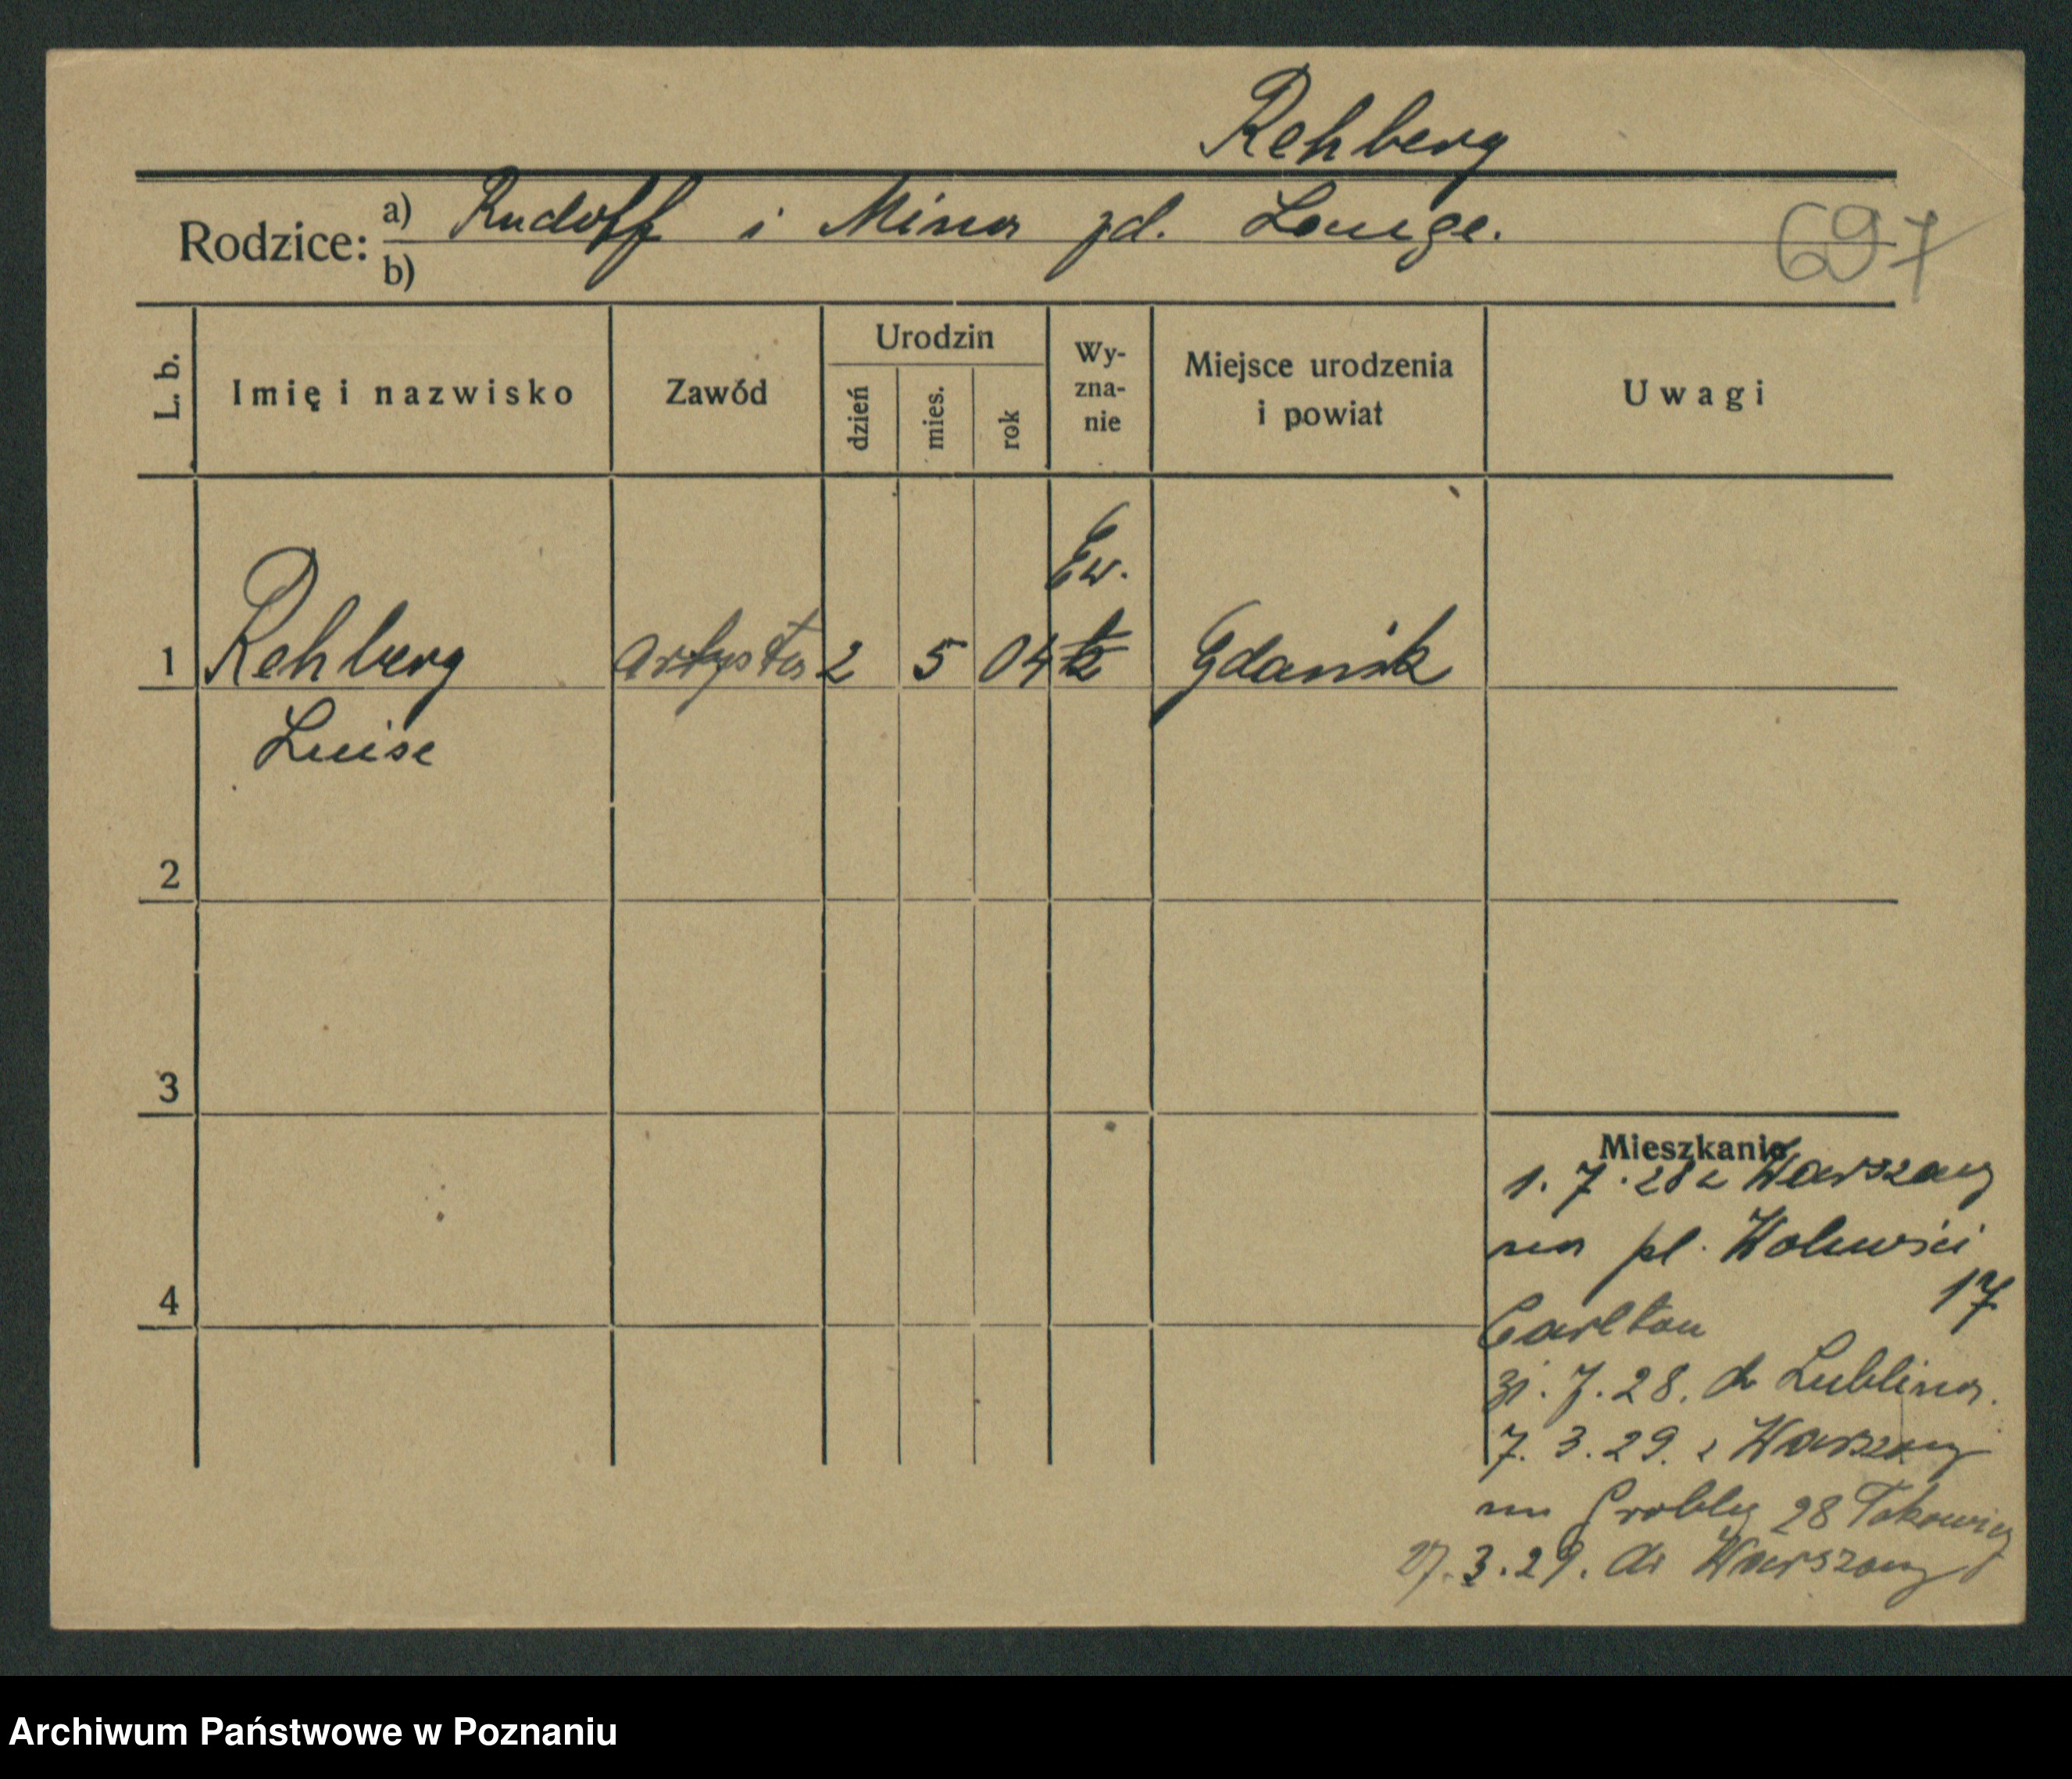 Rehberg
Rodzice: a) Rudolf i Mina zd. Lange.
b)
697
L. b.
Imię i nazwisko
Zawód
Urodzin
dzień
mies.
rok
Wy-
zna-
nie
Miejsce urodzenia
i powiat
Uwagi
Ew.
1 Rehberg artysta 2 5 04 k Gdańsk
Luise
2
3
4
Mieszkanie
1.7.28 z Warszawy
na pl. Wolności
17
Carlton
31.7.28. do Lublina.
7.3.29. z Warszawy
na Grobley 28
27.3.29. do Warszawy
Archiwum Państwowe w Poznaniu